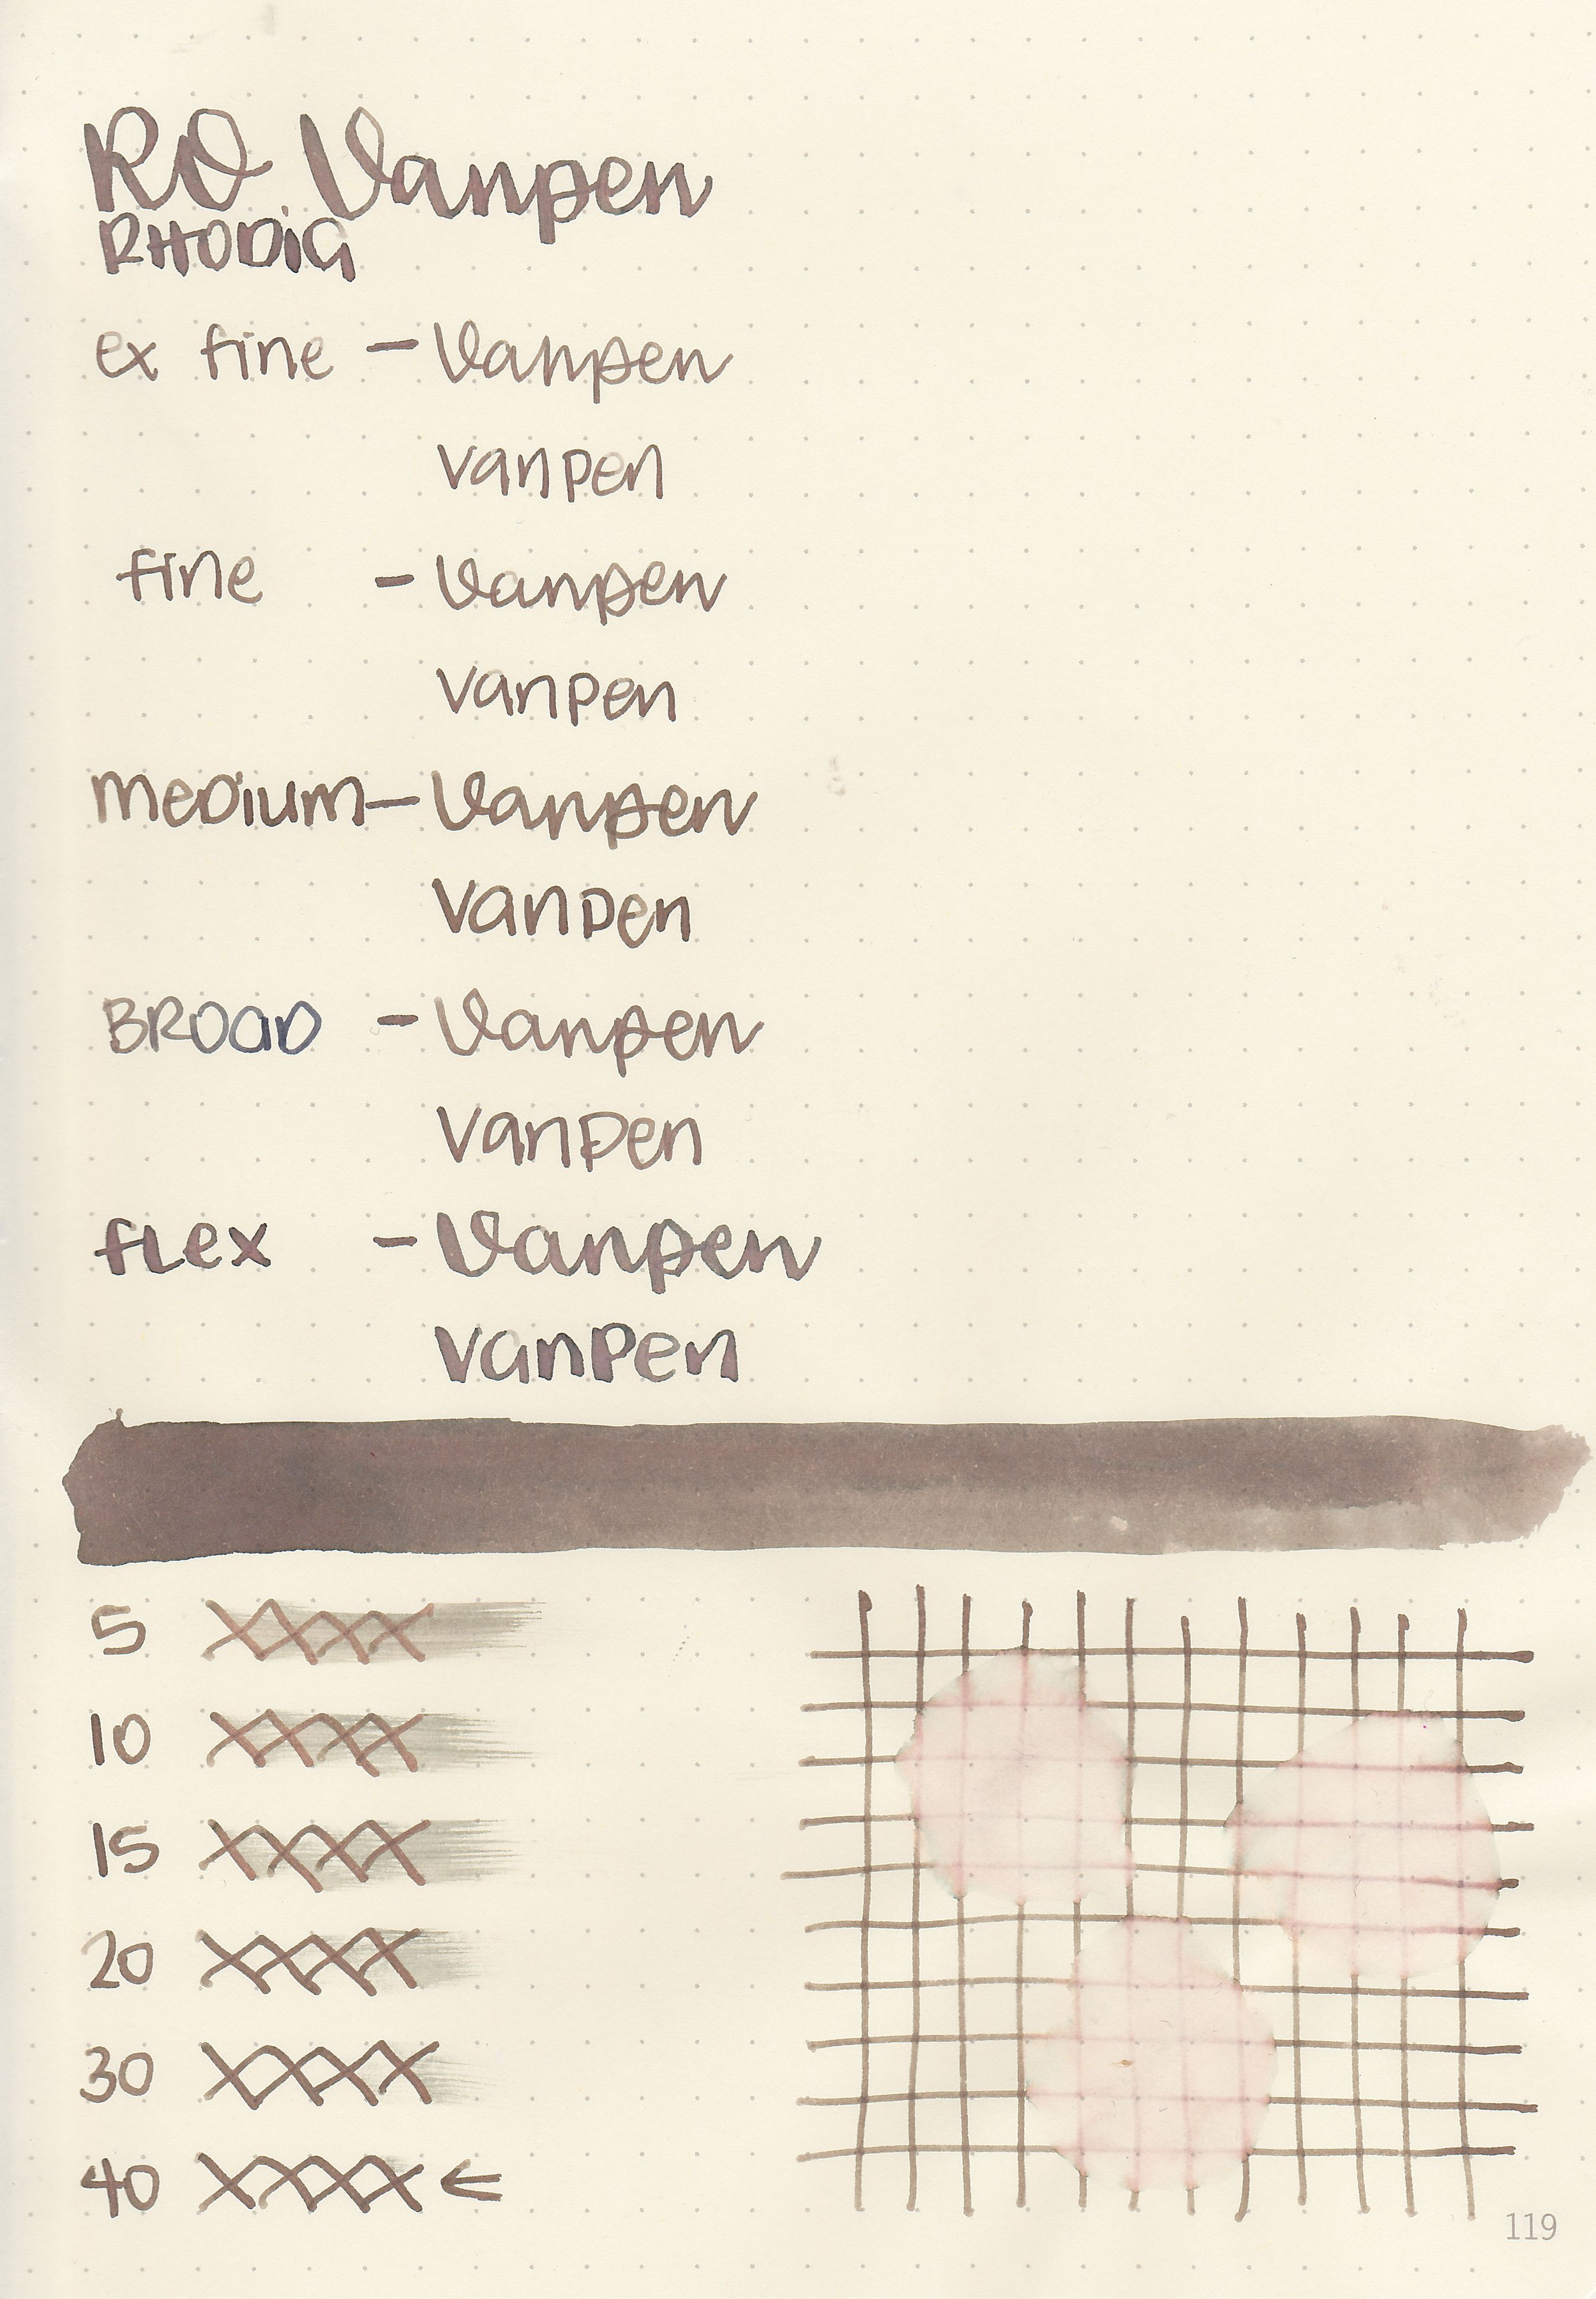 RO Vanpen
RHODIA
ex fine - Vanpen
vanpen
fine - Vanpen
vanpen
medium - Vanpen
vanpen
BROAD - Vanpen
vanpen
flex - Vanpen
vanpen
5 XXXX
10 XXXX
15 XXXX
20 XXXX
30 XXXX
40 XXXX ←
119